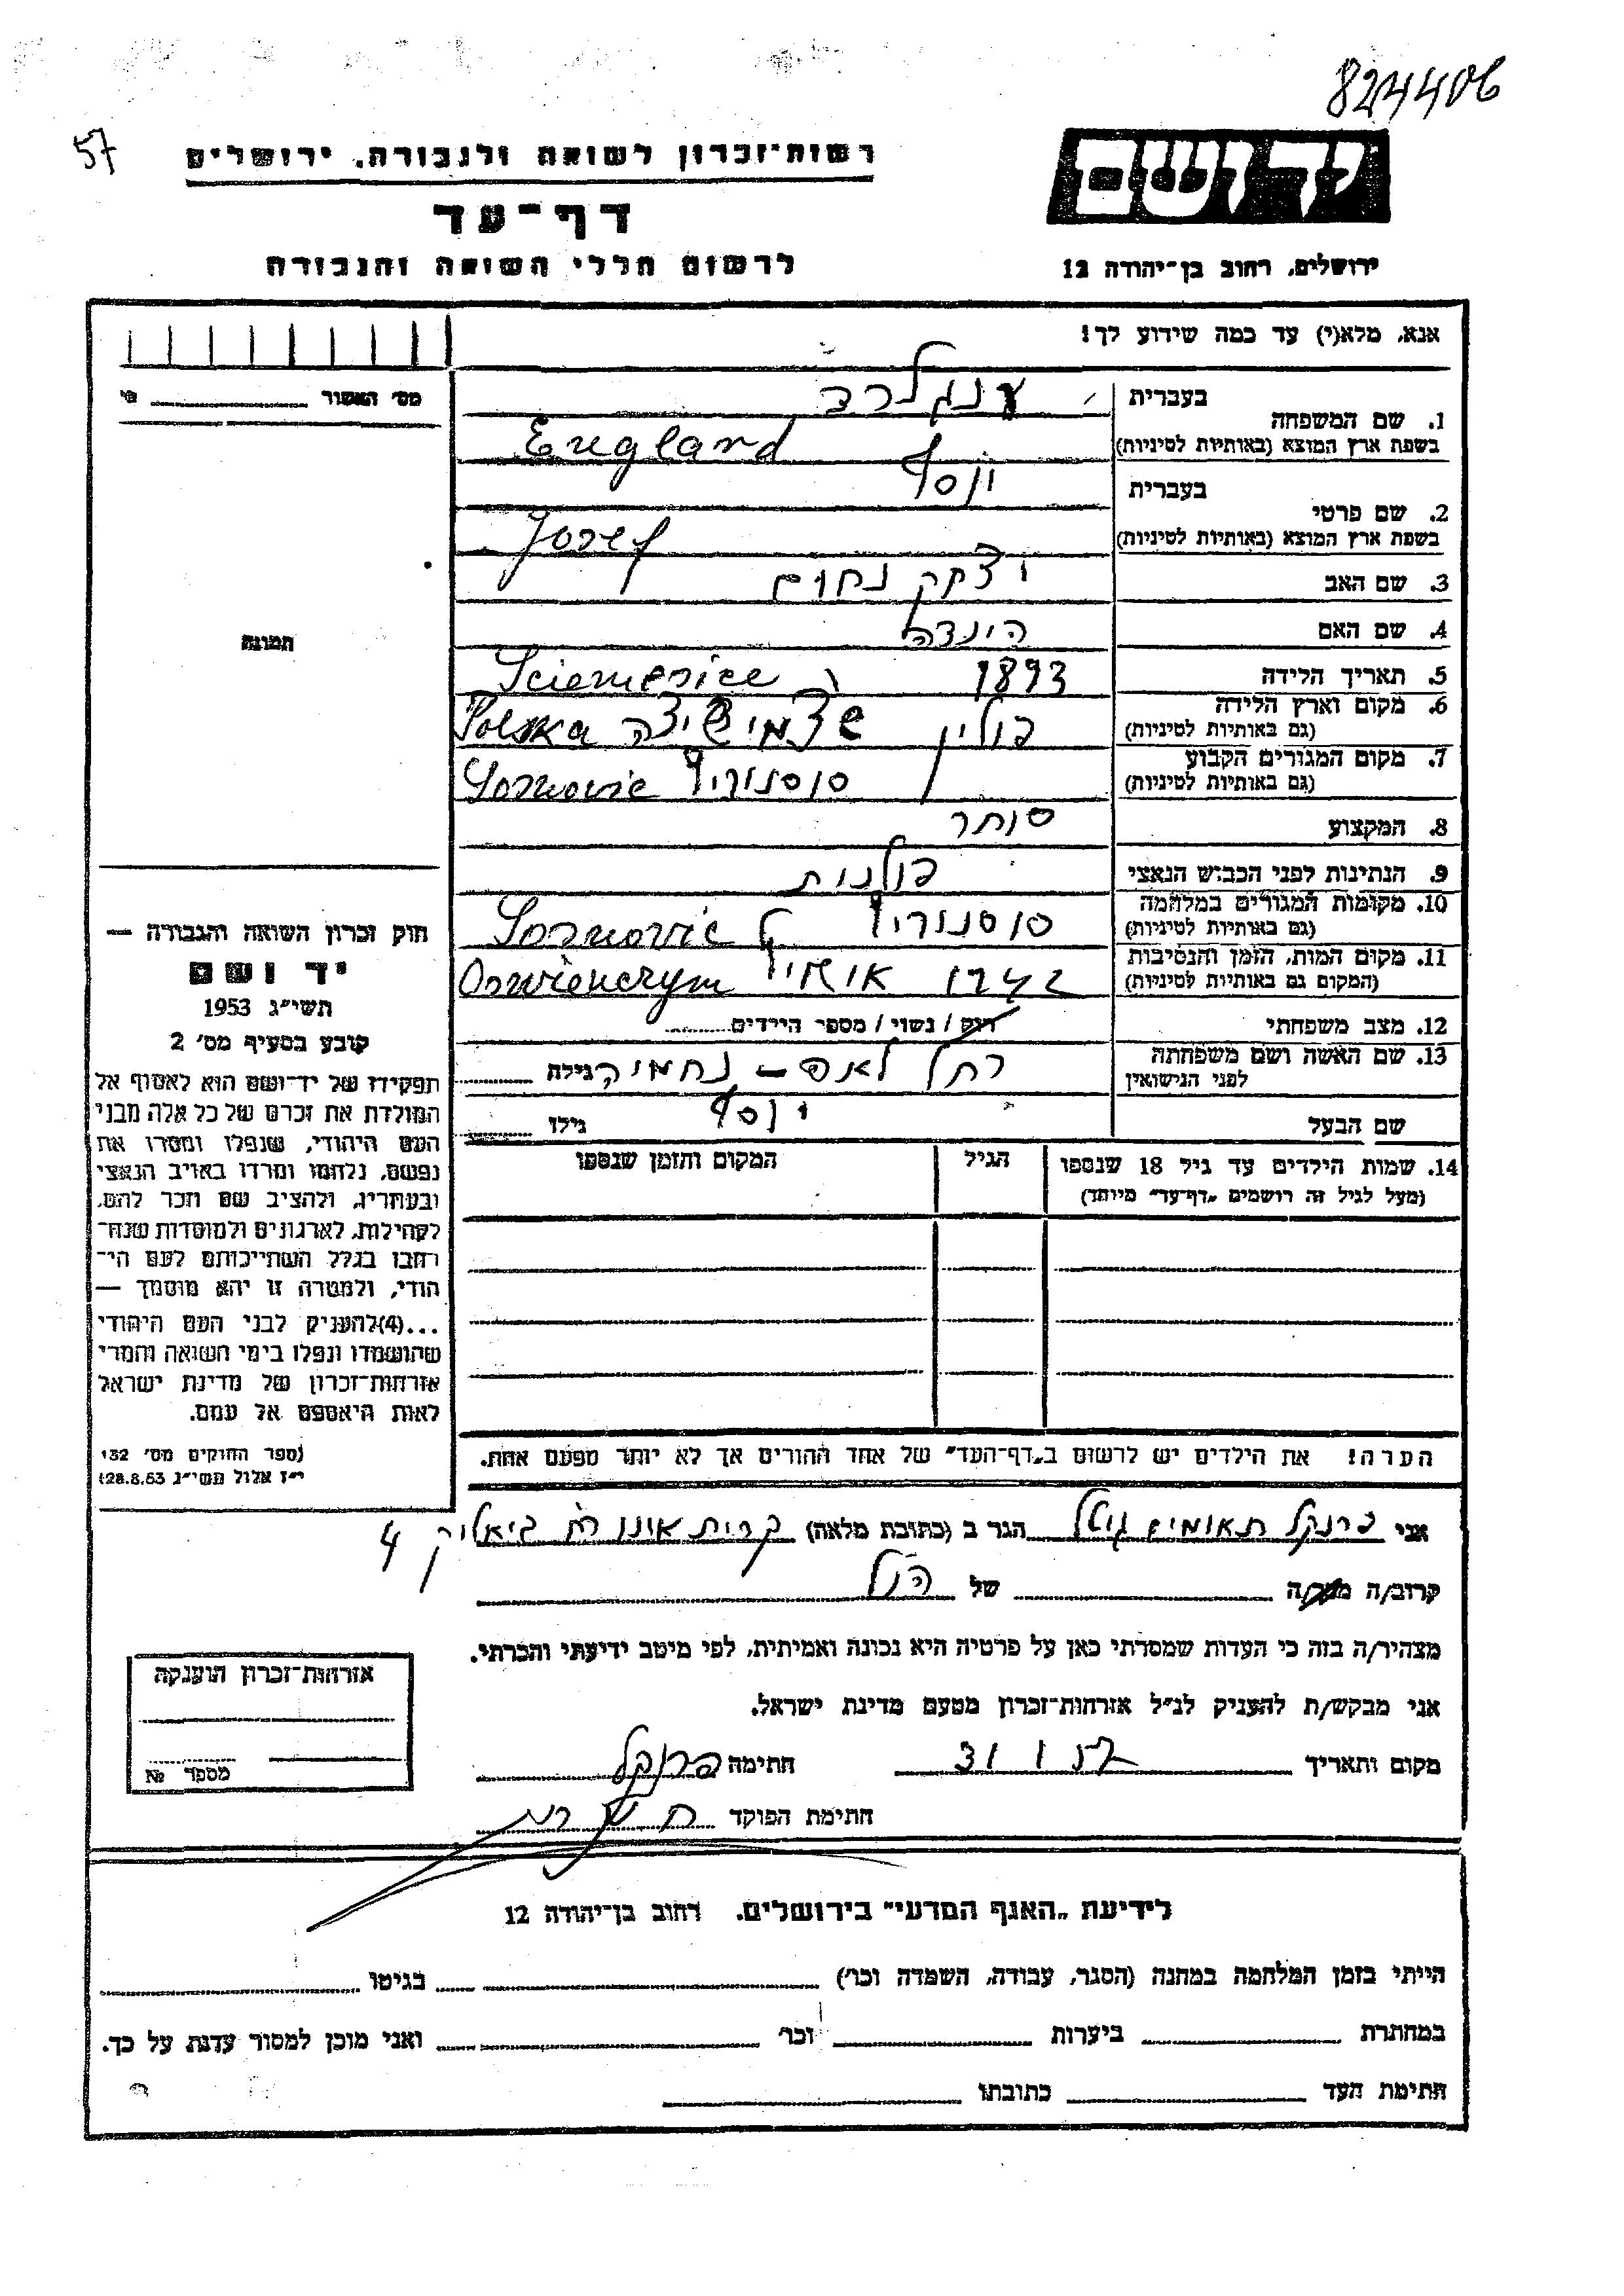 824406
57
רשות־זכרון לשואה ולגבורה, ירושלים
יד ושם
דף־עד
לרשום חללי השואה והגבורה
ירושלים, רחוב בן־יהודה 12
אנא, מלא(י) עד כמה שידוע לך!
מס׳ האשור
בעברית ענגלרד
1. שם המשפחה
בשפת ארץ המוצא (באותיות לטיניות) England
בעברית יוסף
2. שם פרטי
בשפת ארץ המוצא (באותיות לטיניות) Josef
3. שם האב יצחק נחום
4. שם האם הינדה
תמונה
5. תאריך הלידה 1893
6. מקום וארץ הלידה
(גם באותיות לטיניות) פולין Polska
7. מקום המגורים הקבוע
(גם באותיות לטיניות) סוסנוביץ Sosnovic
8. המקצוע סוחר
9. הנתינות לפני הכבוש הנאצי פולנית
10. מקומות המגורים במלחמה
(גם באותיות לטיניות) סוסנוביץ Sosnovic
11. מקום המות, הזמן והנסיבות
(המקום גם באותיות לטיניות)
12. מצב משפחתי רוק / נשוי / מספר הילדים
13. שם האשה ושם משפחתה
לפני הנישואין רחל לאה – נחמיה גילה
שם הבעל יוסף גילו
14. שמות הילדים עד גיל 18 שנספו הגיל המקום והזמן שנספו
(מעל לגיל זה רושמים „דף־עד״ מיוחד)
הערה! את הילדים יש לרשום ב„דף־העד״ של אחד ההורים אך לא יותר מפעם אחת.
חוק זכרון השואה והגבורה —
יד ושם
תשי״ג 1953
קובע בסעיף מס׳ 2
תפקידו של יד־ושם הוא לאסוף אל
המולדת את זכרם של כל אלה מבני
העם היהודי, שנפלו ומסרו את
נפשם, נלחמו ומרדו באויב הנאצי
ובעוזריו, ולהציב שם וזכר להם,
לקהילות, לארגונים ולמוסדות שנח־
רבו בגלל השתייכותם לעם הי־
הודי, ולמטרה זו יהא מוסמך —
...(4)להעניק לבני העם היהודי
שהושמדו ונפלו בימי השואה והמרי
אזרחות־זכרון של מדינת ישראל
לאות היאספם אל עמם.
(ספר החוקים מס׳ 132
י״ז אלול תשי״ג 28.8.53)
אני פרנקל תאומים גיטל הגר ב (כתובת מלאה) קרית אונו רח ביאליק 4
קרוב/ה מכר/ה של הנ״ל
מצהיר/ה בזה כי העדות שמסרתי כאן על פרטיה היא נכונה ואמיתית, לפי מיטב ידיעתי והכרתי.
אני מבקש/ת להעניק לנ״ל אזרחות־זכרון מטעם מדינת ישראל.
מקום ותאריך 31 1 57 חתימה פרנקל
חתימת הפוקד
אזרחות־זכרון הוענקה
מספר №
לידיעת „האגף המדעי״ בירושלים. רחוב בן־יהודה 12
הייתי בזמן המלחמה במחנה (הסגר, עבודה, השמדה וכו׳) בגיטו
במחתרת ביערות וכו׳ ואני מוכן למסור עדות על כך.
חתימת העד כתובתו